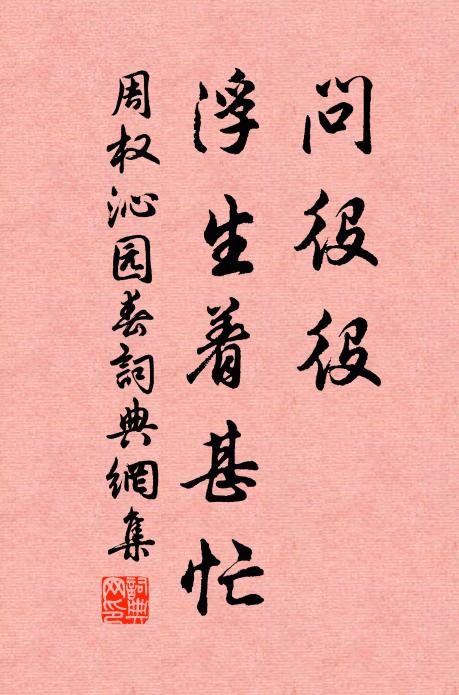 问役役
浮生着甚忙
周权沁园春詞典網集
詞典网印